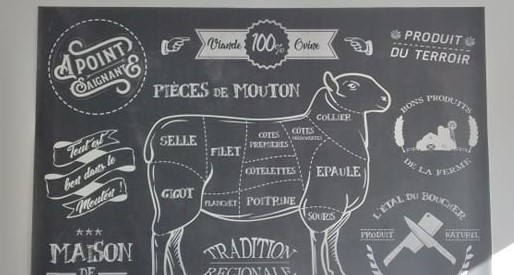 À POINT
SAIGNANTE
Viande 100% Ovine
PRODUIT
DU TERROIR
PIÈCES DE MOUTON
BONS PRODUITS
DE LA FERME
Tout est
bon dans le
Mouton !
SELLE
FILET
CÔTES
PREMIÈRES
CÔTES
DÉCOUVERTES
COLLIER
CÔTELETTES
EPAULE
GIGOT
FLANCHET
POITRINE
SOURIS
L'ÉTAL DU BOUCHER
PRODUIT
NATUREL
MAISON
DE
TRADITION
RÉGIONALE